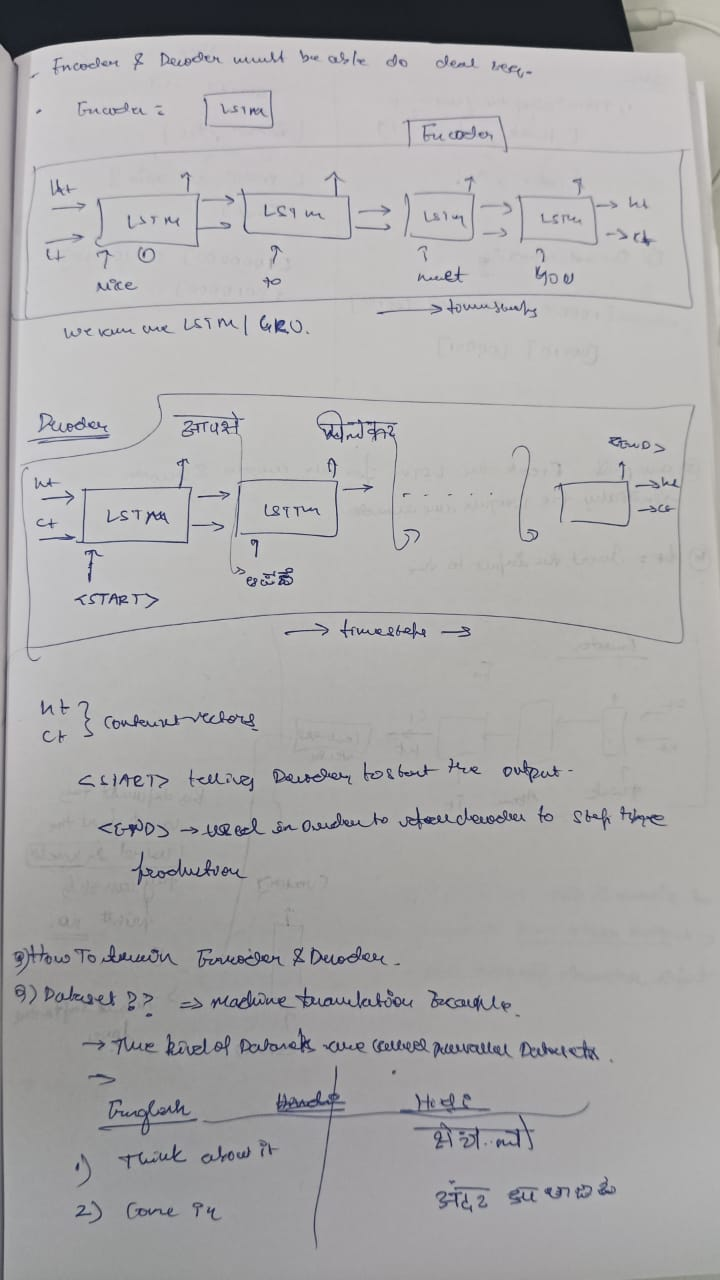 - Encoder & Decoder must be able do deal seq.
• Encoder = LSTM
Encoder
ht
LSTM LSTM LSTM LSTM → ht
ct → ct
Nice to meet you
→ timesteps
We can use LSTM / GRU.
Decoder आपसे मिलकर <END>
ht → ht
ct LSTM LSTM . . . . . . → ct
<START>
→ timesteps →
ht
ct } context vectors
<START> telling Decoder to start the output.
<END> → used in order to decoder to stop
production
Q) How To train Encoder & Decoder.
Q) Dataset ?? ⇒ Machine translation Example.
→ The kind of Datasets are called parallel Datasets.
→
English Hindi
1) Think about it
2) Come in अंदर